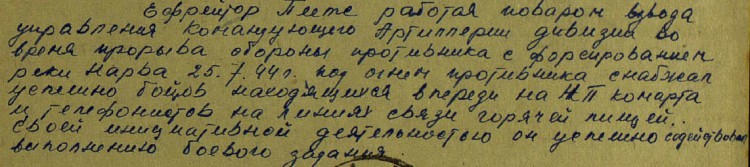 Ефрейтор Петс работая поваром взвода
управления Командующего Артиллерии дивизии во
время прорыва обороны противника с форсированием
реки Нарва 25.7.44 г. под огнем противника снабжал
успешно бойцов находящихся впереди на НП комарта
и телефонистов на линиях связи горячей пищей.
Своей инициативной деятельностью он успешно содействовал
выполнению боевого задания.